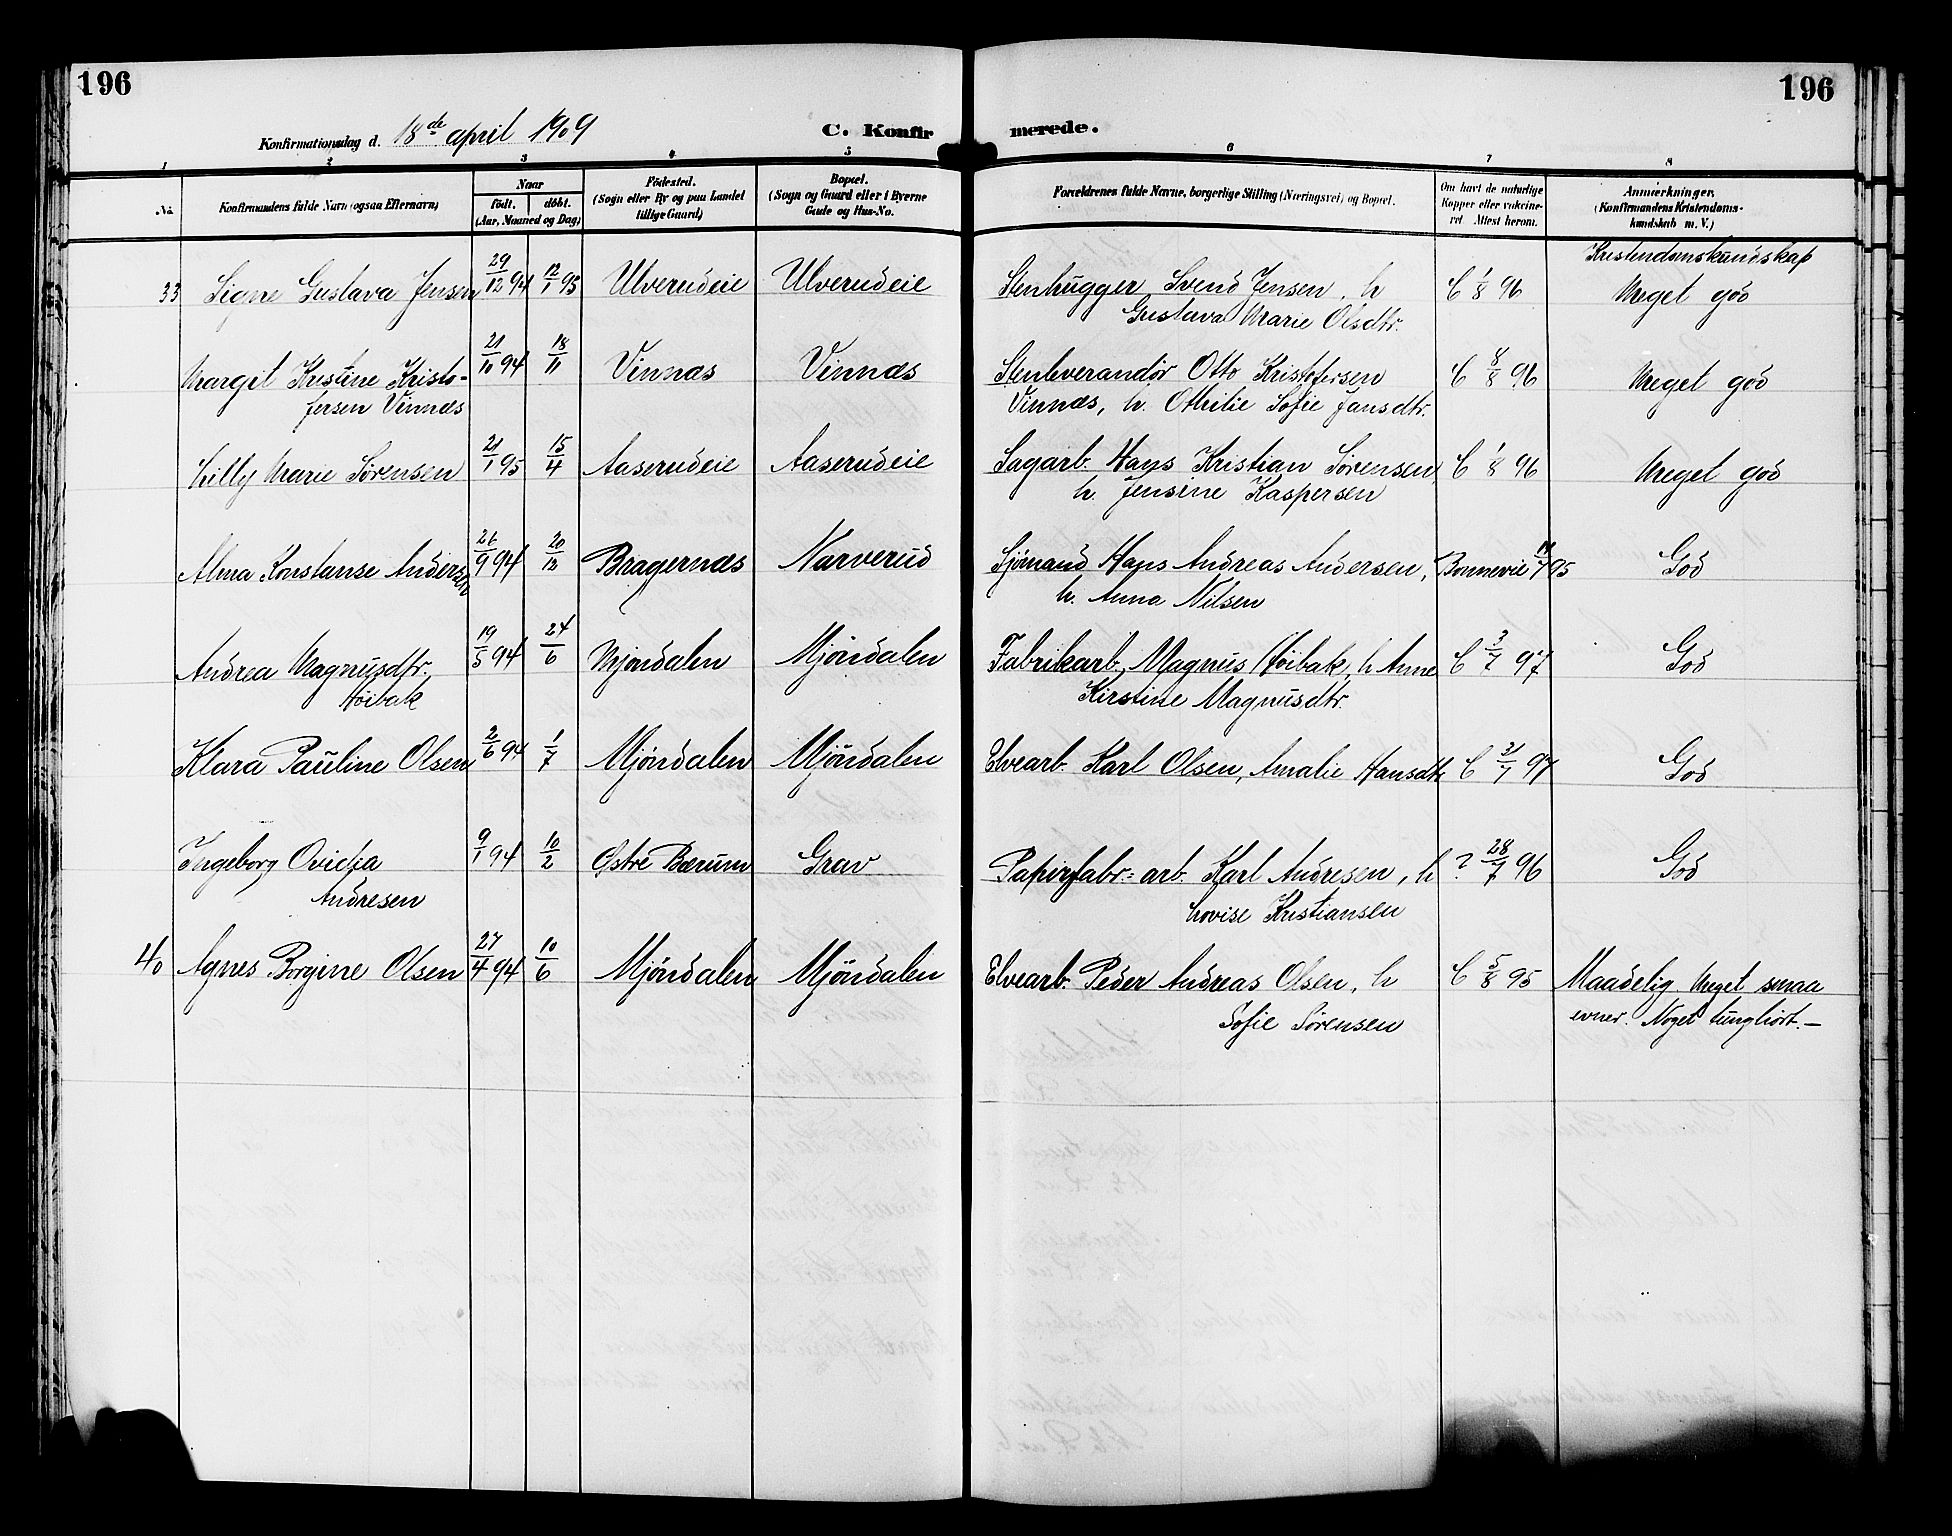 196
196
Konfirmationsdag d. 18de april 1909
C. Konfirmerede.
1 2 3 4 5 6 7 8
No.
Konfirmandens fulde Navn (ogsaa Efternavn)
Naar
født. døbt.
(Aar, Maaned og Dag)
Fødested.
(Sogn eller By og paa Landet
tillige Gaard)
Bopæl.
(Sogn og Gaard eller i Byerne
Gade og Hus-No.
Forældrenes fulde Navne, borgerlige Stilling (Næringsvei) og Bopæl.
Om havt de naturlige
Kopper eller vakcine-
ret. Attest herom.
Anmerkninger.
(Konfirmandens Kristendoms-
kundskab m. V.)
Kristendomskundskap
33 Signe Gustava Jensen 29/12 94 12/1 95 Ulverudeie Ulverudeie Stenhugger Svend Jensen, h C 1/8 96 Meget god
Gustava Marie Olsdtr.
Margit Kristine Kristo- 21/10 94 18/11 Vinnæs Vinnæs Stenleverandør Otto Kristofersen C 8/8 96 Meget god
fersen Vinnæs Vinnæs, h. Othilie Sofie Jansdtr.
Lilly Marie Sørensen 21/1 95 15/4 Aaserudeie Aaserudeie Sagarb. Hans Kristian Sørensen C 1/8 96 Meget god
h. Jensine Kaspersen
Alma Konstanse Andersen 26/9 94 20/12 Bragernæs Narverud Sjømand Hans Andreas Andersen, Bonnevie 95 God
h. Anna Nilsen
Andrea Magnusdtr. 19/5 94 24/6 Mjøndalen Mjøndalen Fabrikarb. Magnus Høibak, h Anne C 3/7 97 God
Høibak Kirstine Magnusdtr.
Klara Pauline Olsen 2/6 94 1/7 Mjøndalen Mjøndalen Elvearb. Karl Olsen, Amalie Hansdtr C 97 God
Ingeborg Ovidia 9/1 94 10/2 Østre Bærum Grav Papirfabr.-arb. Karl Andresen, h ? 28/7 96 God
Andresen Lovise Kristiansen
40 Agnes Borgine Olsen 27/4 94 10/6 Mjøndalen Mjøndalen Elvearb. Peder Andreas Olsen, h C 5/8 95 Maadelig. Meget smaa
Sofie Sørensen evner. Noget tunghørt.-